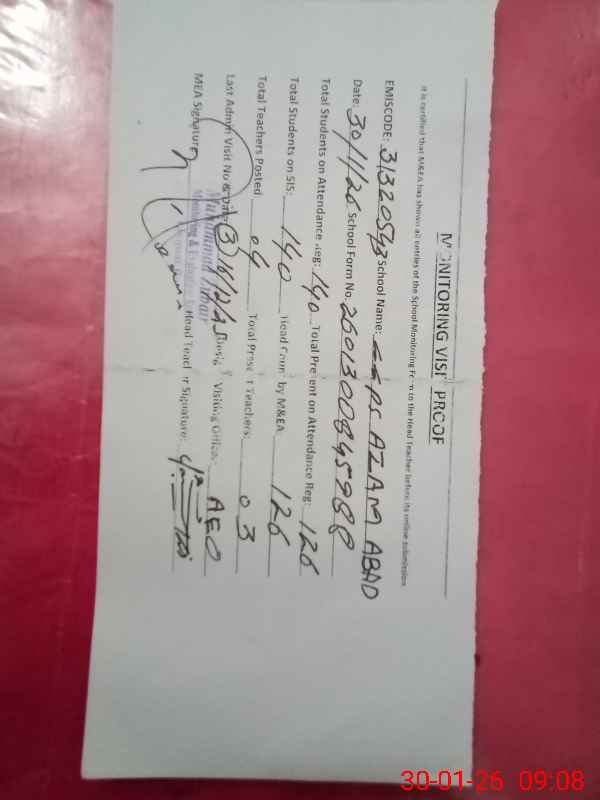 MONITORING VISIT PROOF
It is certified that M&EA has shown all entries of the School Monitoring Form to the Head Teacher before its online submission
EMISCODE: 31320543 School Name: GGPS AZAM ABAD
Date: 30/1/26 School Form No. 2601300845988
Total Students on Attendance Reg: 140 Total Present on Attendance Reg: 126
Total Students on SIS: 140 Head Count by M&EA 126
Total Teachers Posted 04 Total Present Teachers: 03
Last Admin Visit No & Date: (3) Desig of Visiting Officer AEO
MEA Signature Head Teacher Signature:
Muhammad
Monitoring &
30-01-26 09:08